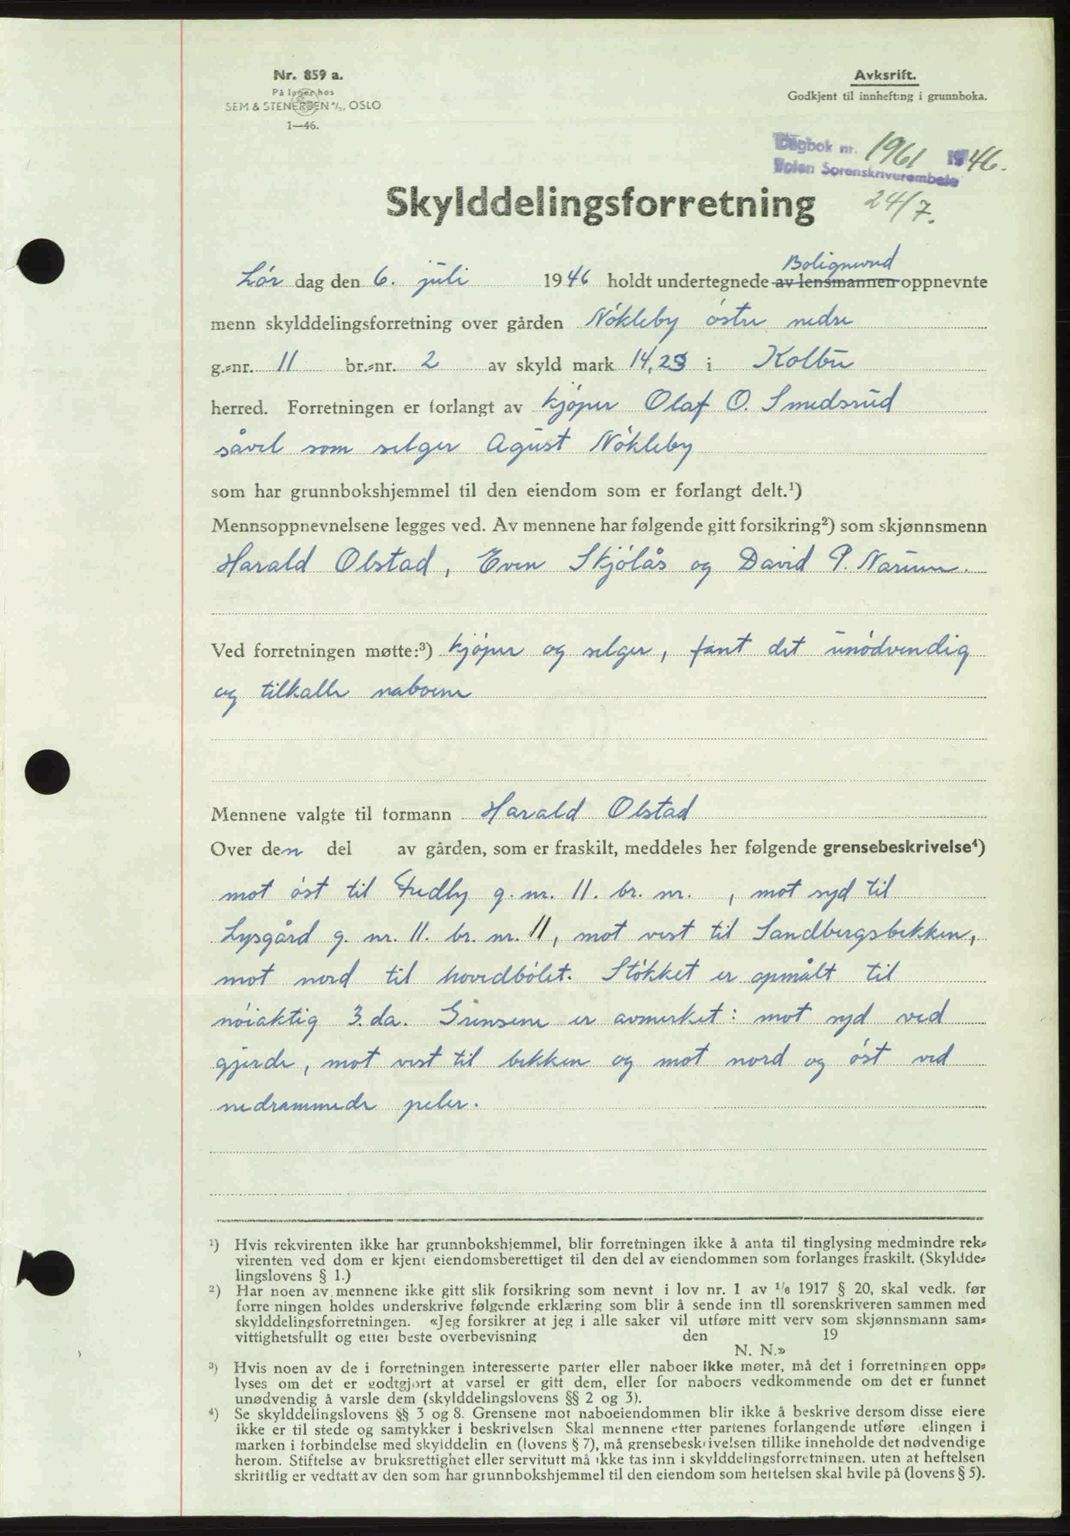 Nr. 859 a.
På lager hos
SEM & STENERSEN A/S, OSLO
1—46.
Avskrift.
Godkjent til innhefting i grunnboka.
Dagbok nr. 1961 1946.
Toten Sorenskriverembete
24/7.
Skylddelingsforretning
Lør dag den 6. juli 1946 holdt undertegnede av lensmannen Bolignevnd oppnevnte
menn skylddelingsforretning over gården Nökleby östre nedre
g.-nr. 11 br.-nr. 2 av skyld mark 14,29 i Kolbu
herred. Forretningen er forlangt av kjöper Olaf O. Smedsrud
såvel som selger Agust Nökleby
som har grunnbokshjemmel til den eiendom som er forlangt delt.¹)
Mennsoppnevnelsene legges ved. Av mennene har følgende gitt forsikring²) som skjønnsmenn
Harald Olstad, Even Skjölås og David P. Narum.
Ved forretningen møtte:³) kjöper og selger, fant det unödvendig
og tilkalle naboene
Mennene valgte til formann Harald Olstad
Over den del av gården, som er fraskilt, meddeles her følgende grensebeskrivelse⁴)
mot öst til Fredly g. nr. 11. br. nr. , mot syd til
Lysgård g. nr. 11. br. nr. 11, mot vest til Sandbergsbekken,
mot nord til hovedbölet. Stökket er opmålt til
nöiaktig 3. da. Grensene er avmerket: mot syd ved
gjerde, mot vest til bekken og mot nord og öst ved
nedrammede peler.
¹) Hvis rekvirenten ikke har grunnbokshjemmel, blir forretningen ikke å anta til tinglysing medmindre rek-
virenten ved dom er kjent eiendomsberettiget til den del av eiendommen som forlanges fraskilt. (Skyldde-
lingslovens § 1.)
²) Har noen av mennene ikke gitt slik forsikring som nevnt i lov nr. 1 av 1/6 1917 § 20, skal vedk. før
forretningen holdes underskrive følgende erklæring som blir å sende inn til sorenskriveren sammen med
skylddelingsforretningen. «Jeg forsikrer at jeg i alle saker vil utføre mitt verv som skjønnsmann sam-
vittighetsfullt og etter beste overbevisning den 19
N. N.»
³) Hvis noen av de i forretningen interesserte parter eller naboer ikke møter, må det i forretningen opp-
lyses om det er godtgjort at varsel er gitt dem, eller for naboers vedkommende om det er funnet
unødvendig å varsle dem (skylddelingslovens §§ 2 og 3).
⁴) Se skylddelingslovens §§ 3 og 8. Grensene mot naboeiendommen blir ikke å beskrive dersom disse eiere
ikke er til stede og samtykker i beskrivelsen Skal mennene etter partenes forlangende utføre delingen i
marken i forbindelse med skylddelingen (lovens § 7), må grensebeskrivelsen tillike inneholde det nødvendige
herom. Stiftelse av bruksrettighet eller servitutt må ikke tas inn i skylddelingsforretningen, uten at heftelsen
skriftlig er vedtatt av den som har grunnbokshjemmel til den eiendom som heftelsen skal hvile på (lovens § 5).